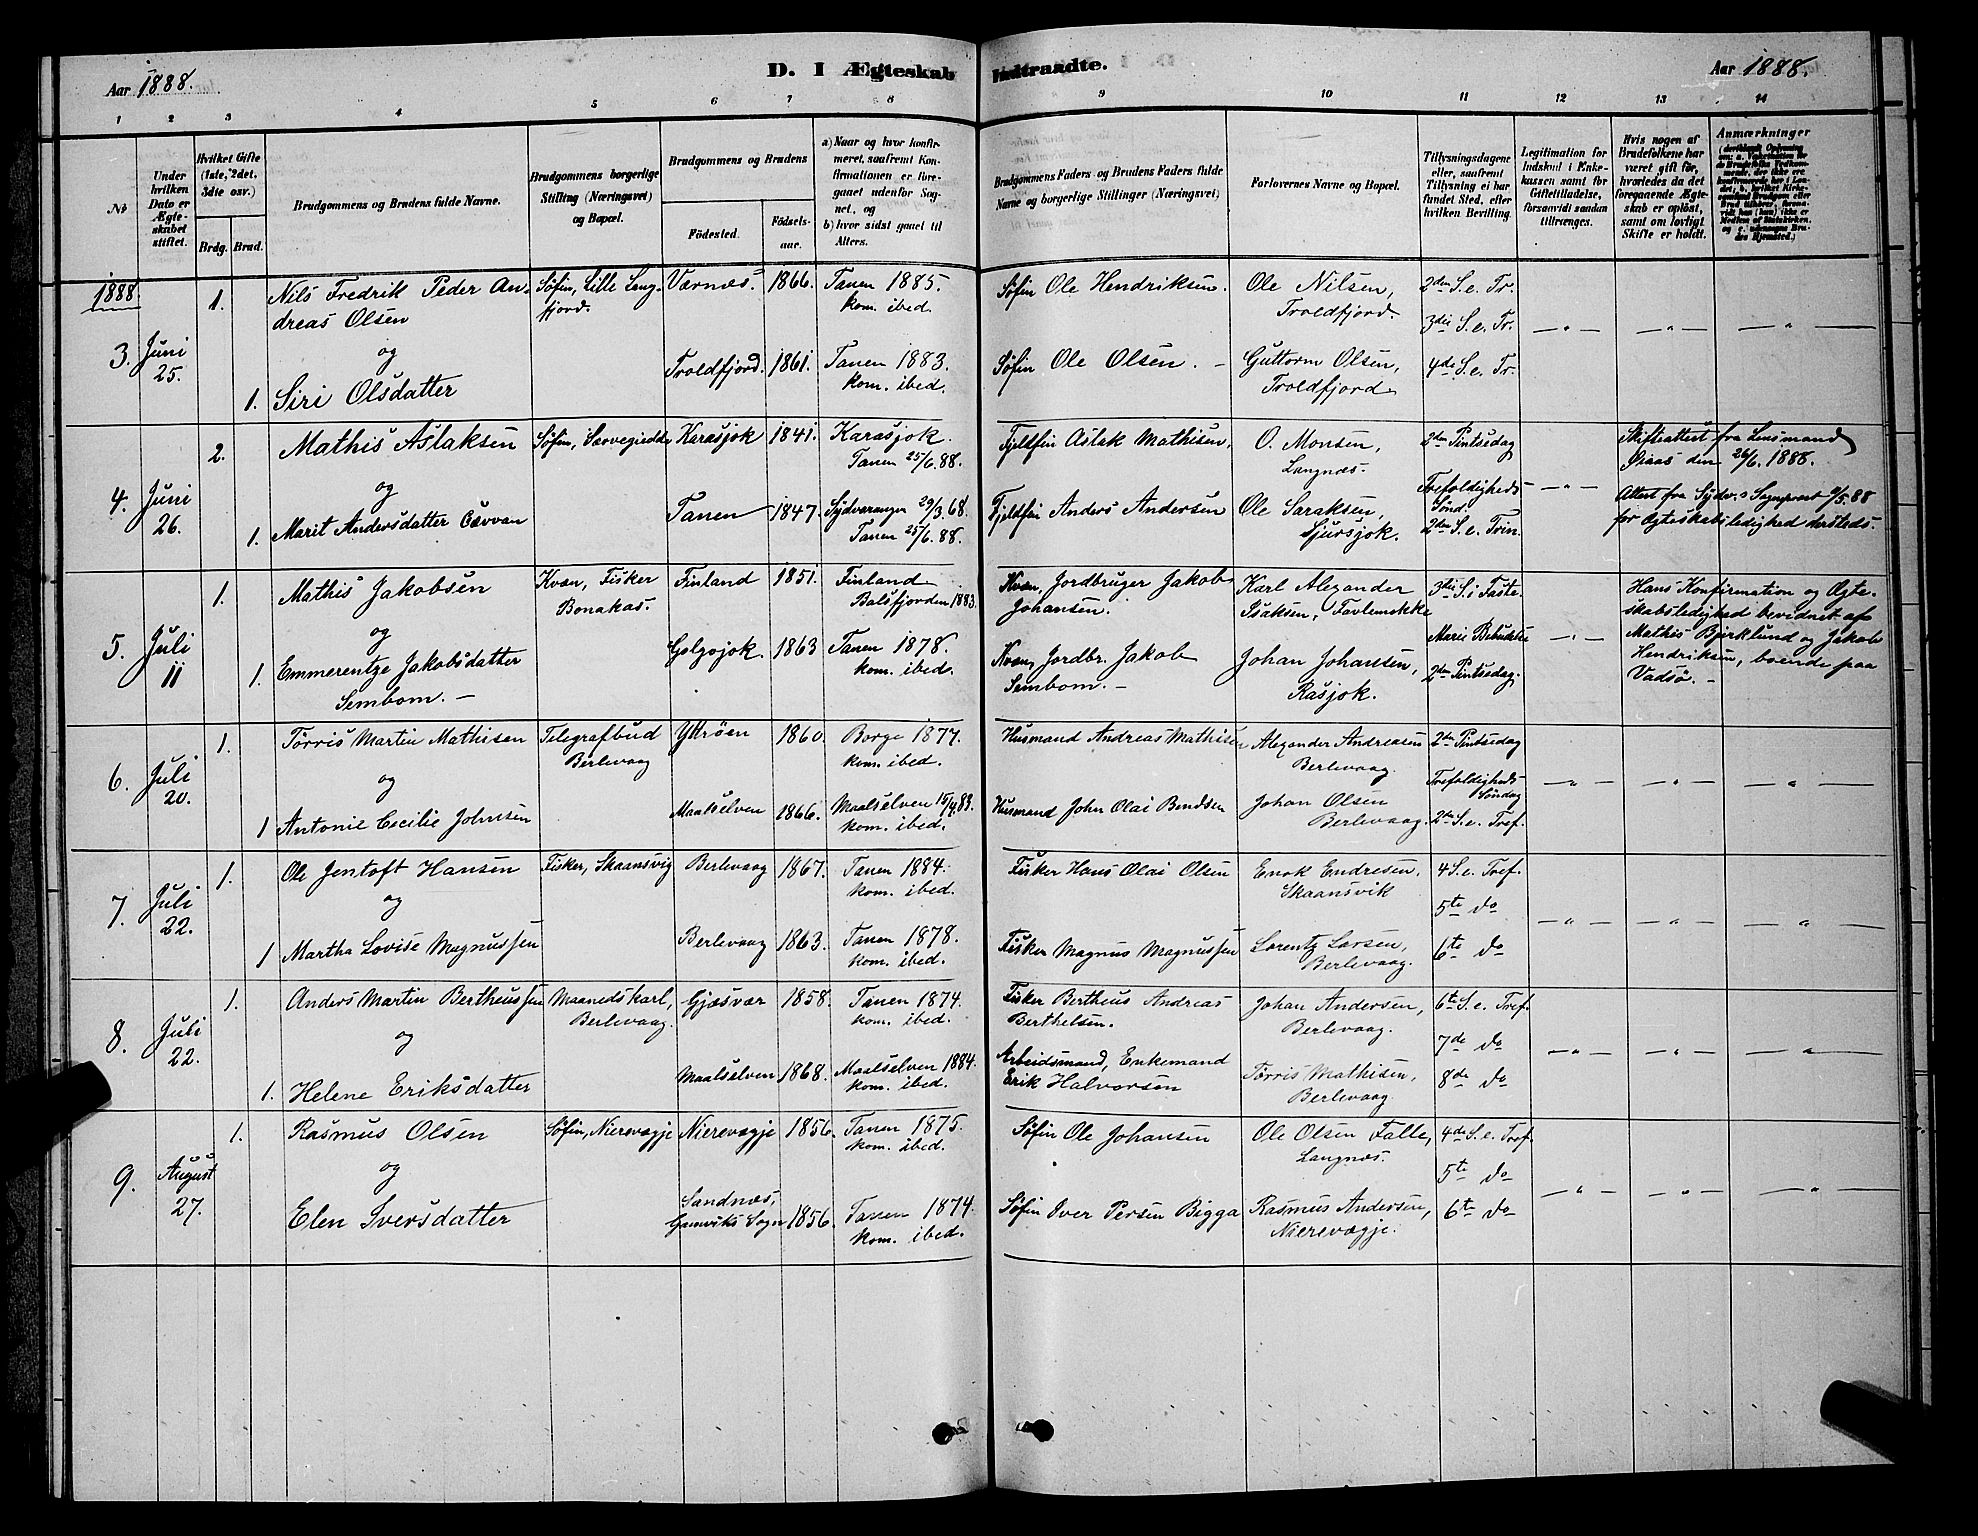 Aar 1888.
D. I Ægteskab Indtraadte.
Aar 1888.
1 2 3 4 5 6 7 8 9 10 11 12 13 14
No
Under hvilken Dato er Ægteskabet stiftet.
Hvilket Gifte (1ste, 2det, 3die osv.)
Brdg. Brud.
Brudgommens og Brudens fulde Navne.
Brudgommens borgerlige Stilling (Næringsvei) og Bopæl.
Brudgommens og Brudens
Fødested.
Fødsels-aar.
a) Naar og hvor konfirmeret, saafremt Konfirmationen er foregaaet udenfor Sognet, og
b) hvor sidst gaaet til Alters.
Brudgommens Faders og Brudens Faders fulde Navne og borgerlige Stillinger (Næringsvei)
Forlovernes Navne og Bopæl.
Tillysningsdagene eller, saafremt Tillysning ei har fundet Sted, efter hvilken Bevilling.
Legitimation for Indskud i Enkekassen samt for Giftetilladelse, forsaavidt saadan tiltrænges.
Hvis nogen af Brudefolkene har været gift før, hvorledes da det foregaaende Ægteskab er opløst, samt om lovligt Skifte er holdt.
Anmærkninger
1888.
3. Juni 25.
1. Nils Fredrik Peder Andreas Olsen
og
1. Siri Olsdatter
Søfin, Lille Langfjord.
Værnes. 1866. Tanen 1885. kom. ibed.
Troldfjord. 1861. Tanen 1883. kom. ibed.
Søfin Ole Hendriksen.
Søfin Ole Olsen. –
Ole Nilsen, Troldfjord.
Guttorm Olsen, Troldfjord
2den S. e. Tr.
3die S. e. Tr.
4de S. e. Tr.
– " – – " – – " –
4. Juni 26.
2. Mathis Aslaksen
og
1. Marit Andersdatter
Søfin,
Karasjok 1841. Karasjok. Tanen 25/6.88.
Tanen 1847. Sydvaranger 29/3.68. Tanen 25/6.88.
Fjeldfin Aslak Mathisen,
Fjeldfin Anders Andersen
O. Monsen, Langnæs.
Ole Saraksen, Sjursjok.
2den Pintsedag
Trefoldigheds Sønd.
2den S. e. Trin.
– " –
Skifteattest fra Lensmand
den 26/6. 1888.
Attest fra Sydv.s Sognepræst
for Ægteskabsledighed dersteds.
5. Juli 11
1. Mathis Jakobsen
og
1. Emmerentze Jakobsdatter Sembom. –
Kvæn, Fisker Bonakas.
Finland 1851. Finland Balsfjorden 1883.
Golgojok. 1863 Tanen 1878. kom. ibed.
Kvæn, Jordbruger Jakob Johansen.
Kvæn, Jordbr. Jakob Sembom. –
Karl Alexander Isaksen,
Johan Johansen, Rasjok.
3die S. i Faste
Marie Bebudelse
2den Pintsedag.
– " –
Hans Konfirmation og Ægteskabsledighed bevidnet af
Mathis Bjørklund og Jakob
Hendriksen, boende paa
Vadsø. –
6. Juli 20.
1. Tørris Martin Mathisen
og
1 Antonie Cecilie Johnsen
Telegrafbud Berlevaag
Yttrøen 1860. Borge 1877. kom. ibed.
Maalselven 1866. Maalselven kom. ibed.
Husmand Andreas Mathisen
Husmand John Olai Bendsen
Alexander Andreasen Berlevaag.
Johan Olsen Berlevaag.
2den Pintsedag
Trefoldigheds Søndag
2den S. e. Tref.
– " – – " – – " –
7. Juli 22.
1. Ole Jentoft Hansen
og
1 Martha Lovise Magnussen
Fisker, Skaansvig
Berlevaag 1867. Tanen 1884. kom. ibed.
Berlevaag 1863. Tanen 1878. kom. ibed.
Fisker Hans Olai Olsen
Fisker Magnus Magnussen
Enok Endresen, Skaansvik
Lorentz Larsen, Berlevaag.
4 S. e. Tref.
5te do
6te do
– " – – " – – " –
8. Juli 22.
1. Anders Martin Bertheussen
og
1. Helene Eriksdatter
Maanedskarl, Berlevaag.
Gjæsvær 1858. Tanen 1874. kom. ibed.
Maalselven 1868. Maalselven 1884. kom. ibed.
Fisker Bertheus Andreas Berthelsen.
Arbeidsmand, Enkemand Erik Halvorsen
Johan Andersen, Berlevaag.
Tørris Mathisen, Berlevaag.
6te S. e. Tref.
7de do
8de do
– " – – " – – " –
9. August 27.
1. Rasmus Olsen
og
Elen Iversdatter
Søfin, Nierevægje
Nierevægje 1856. Tanen 1875. kom. ibed.
Sandnæs, Gamviks Sogn 1856. Tanen 1874. kom. ibed.
Søfin Ole Johansen
Søfin Iver Persen Bigga
Ole Olsen Falle, Langnæs.
Rasmus Andersen, Nierevægje.
4de S. e. Tref.
5te do
6te do
– " – – " – – " –